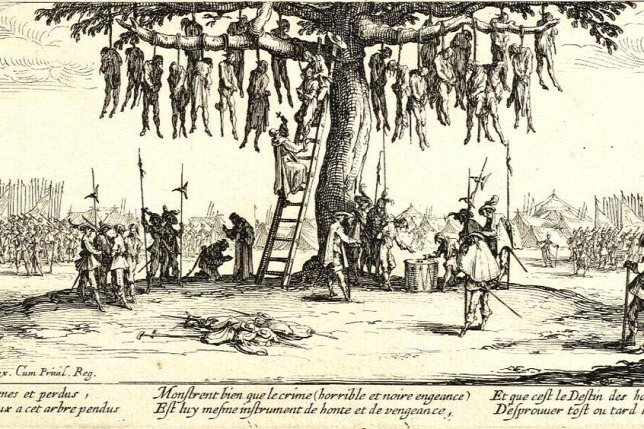 ex. Cum Priuil. Reg.
nes et perdus ,
ux a cet arbre pendus
Monstrent bien que le crime (horrible et noire engeance)
Est luy mesme instrument de honte et de vengeance ,
Et que cest le Destin des
Desprouuer tost ou tard